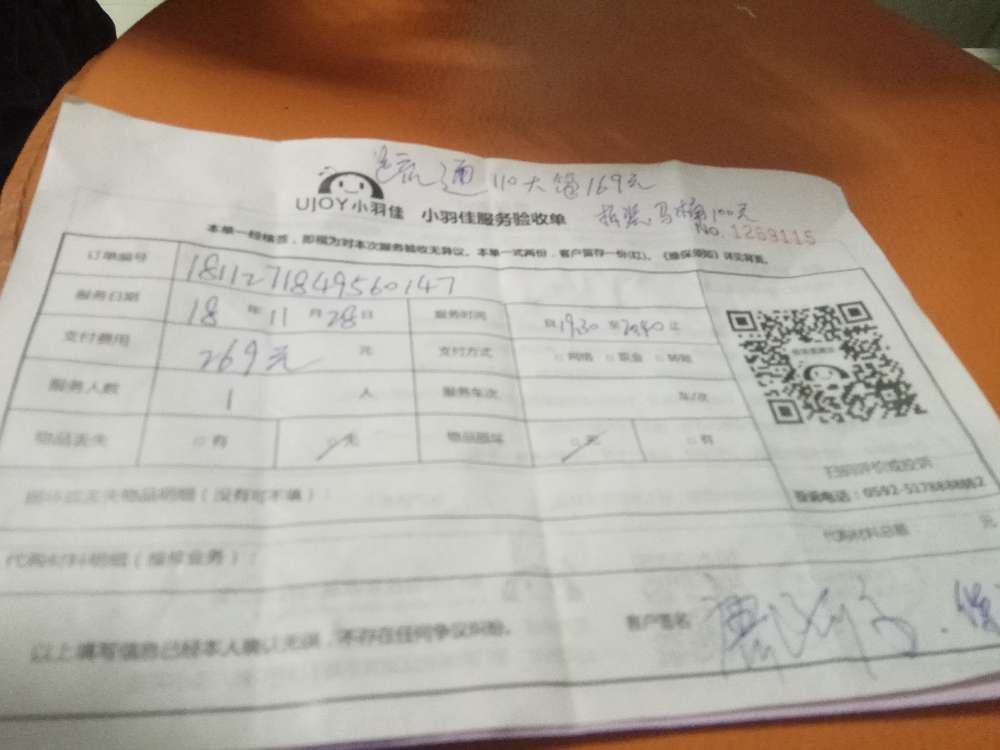 疏通110大管169元
UJOY小羽佳 小羽佳服务验收单 拆装马桶100元
No. 1269115
本单一经签,即视为对本次服务验收无异议。本单一式两份,客户留存一份(红)。《维保须知》详见背面。
订单编号 1811271849560147
服务日期 18 年 11 月 28 日 服务时间 自 19:30 至 止
支付费用 269元 元 支付方式 □网络 □现金 □转账
服务人数 1 人 服务车次 车/次
物品丢失 □有 □无 物品损坏 □无 □有
扫码评价或投诉
损坏或丢失物品明细(没有可不填):
代购材料明细(维修业务): 代购材料总额 元
以上填写信息已经本人确认无误,不存在任何争议纠纷。 客户签名